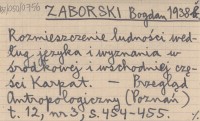 ZABORSKI Bogdan 1938
Rozmieszczenie ludności wed-
ług języka i wyznania w
środkowej i wschodniej czę-
ści Karpat. — Przegląd
Antropologiczny (Poznań)
t. 12, nr 3, s. 454-455.